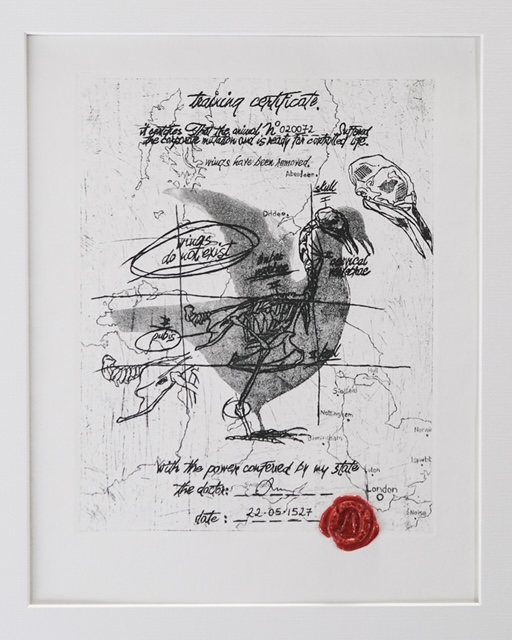 training certificate.
it certifies that the animal, N° 020072 suffered
the corporate mutation and is ready for controlled life.
wings have been removed.
Aberdeen
skull
Dundee
wings
do not exist
cervical
vertebrae
pubis
Hull
Sheffield
Nottingham
Birmingham
Norwi
Luton
London
with the power conferred by my state
the doctor:
date: 22-05-1527